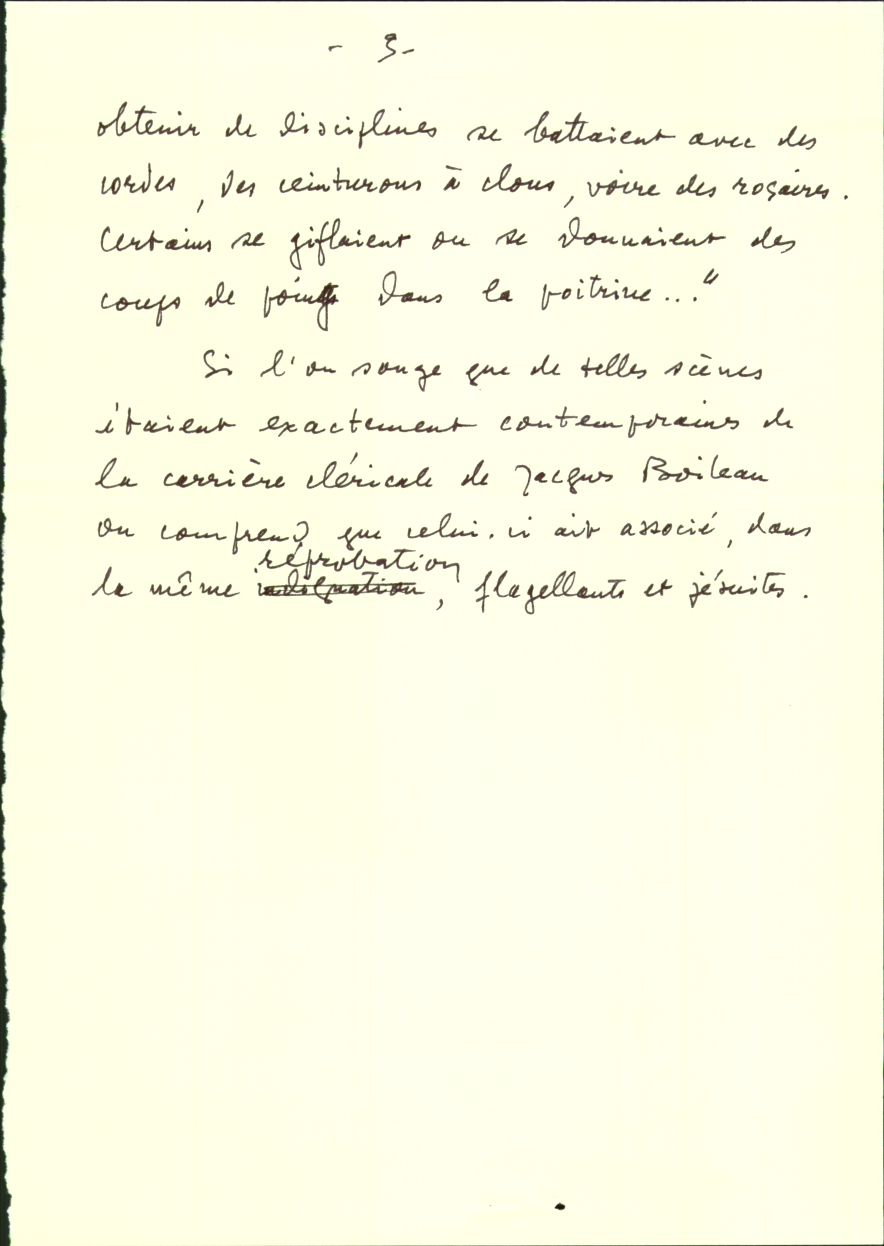 - 3 -
obtenir de disciplines se battaient avec des
cordes, des ceinturons à clous, voire des rosaires.
Certains se giflaient ou se donnaient des
coups de poings dans la poitrine..."
Si l'on songe que de telles scènes
étaient exactement contemporaines de
la carrière cléricale de Jacques Boileau
on comprend que celui-ci ait associé, dans
réprobation
la même indignation, flagellants et jésuites.